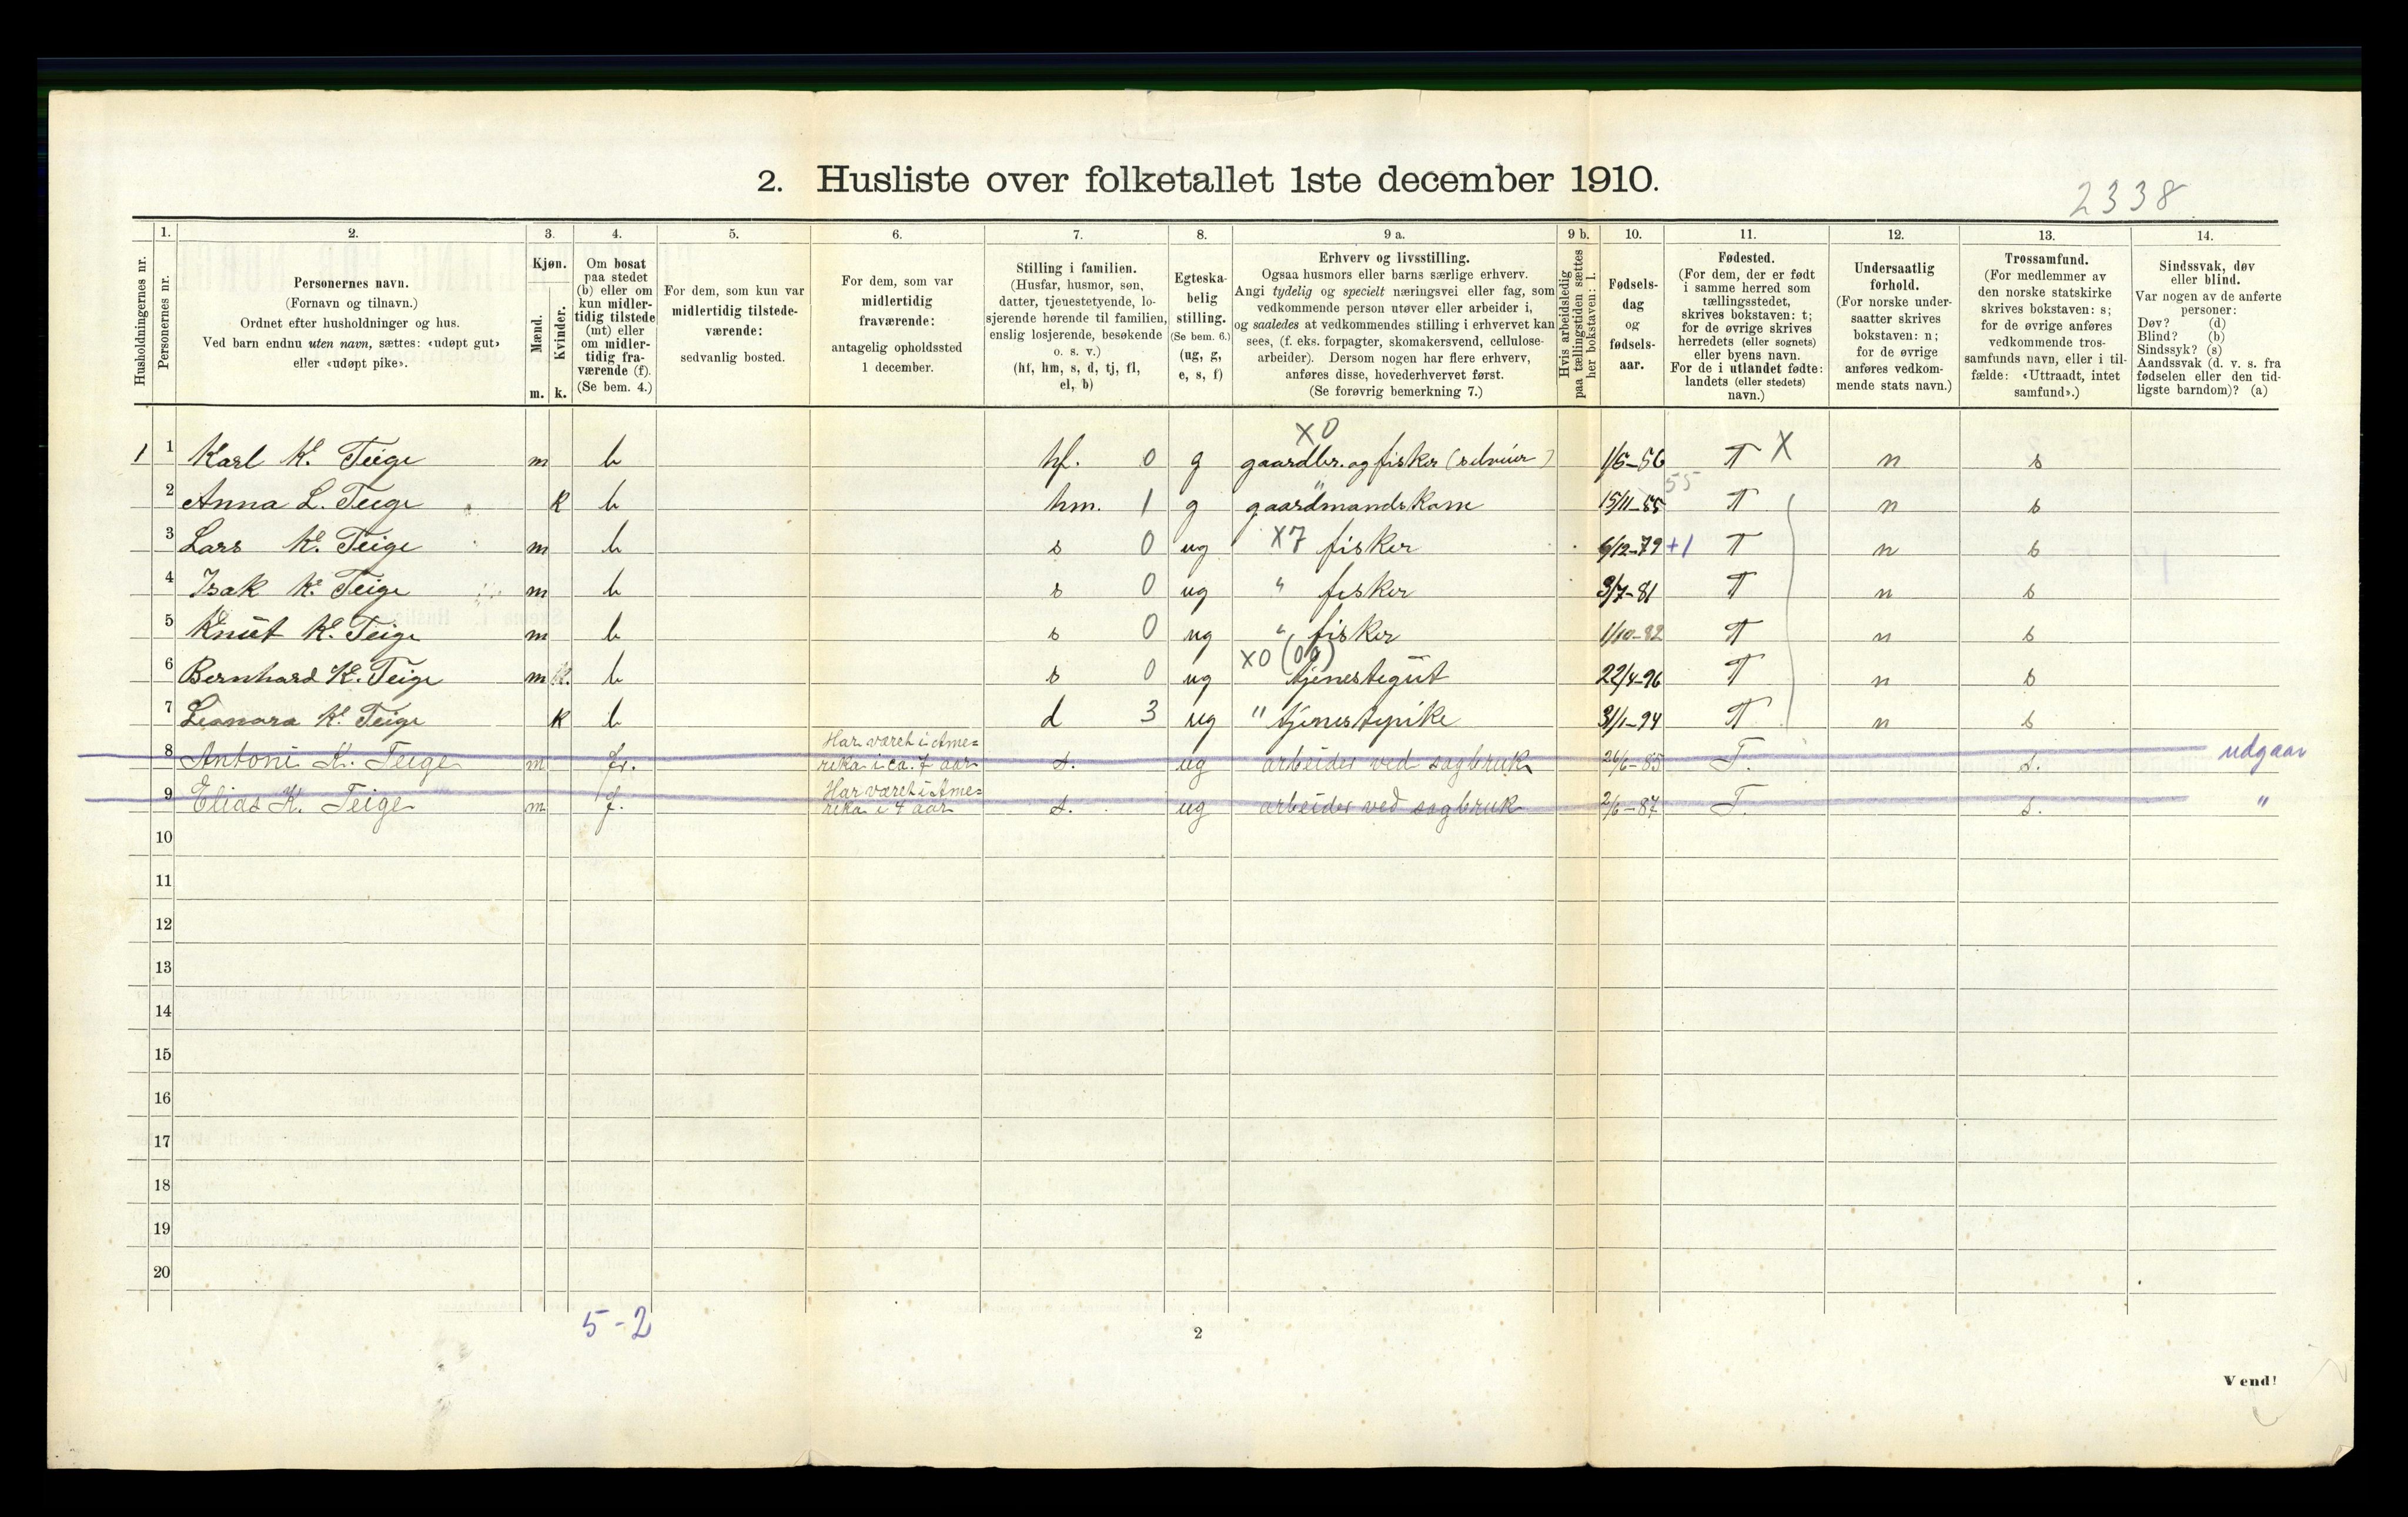 2. Husliste over folketallet 1ste december 1910.
2338
1. 2. 3. 4. 5. 6. 7. 8. 9 a. 9 b. 10. 11. 12. 13. 14.
Husholdningernes nr.
Personernes nr.
Personernes navn.
(Fornavn og tilnavn.)
Ordnet efter husholdninger og hus.
Ved barn endnu uten navn, sættes: «udøpt gut»
eller «udøpt pike».
Kjøn.
Mænd.
Kvinder.
m. k.
Om bosat
paa stedet
(b) eller om
kun midler-
tidig tilstede
(mt) eller
om midler-
tidig fra-
værende (f).
(Se bem. 4.)
For dem, som kun var
midlertidig tilstede-
værende:
sedvanlig bosted.
For dem, som var
midlertidig
fraværende:
antagelig opholdssted
1 december.
Stilling i familien.
(Husfar, husmor, søn,
datter, tjenestetyende, lo-
sjerende hørende til familien,
enslig losjerende, besøkende
o. s. v.)
(hf, hm, s, d, tj, fl,
el, b)
Egteska-
belig
stilling.
(Se bem. 6.)
(ug, g,
e, s, f)
Erhverv og livsstilling.
Ogsaa husmors eller barns særlige erhverv.
Angi tydelig og specielt næringsvei eller fag, som
vedkommende person utøver eller arbeider i,
og saaledes at vedkommendes stilling i erhvervet kan
sees, (f. eks. forpagter, skomakersvend, cellulose-
arbeider). Dersom nogen har flere erhverv,
anføres disse, hovederhvervet først.
(Se forøvrig bemerkning 7.)
Hvis arbeidsledig
paa tællingstiden sættes
her bokstaven: l.
Fødsels-
dag
og
fødsels-
aar.
Fødested.
(For dem, der er født
i samme herred som
tællingsstedet,
skrives bokstaven: t;
for de øvrige skrives
herredets (eller sognets)
eller byens navn.
For de i utlandet fødte:
landets (eller stedets)
navn.)
Undersaatlig
forhold.
(For norske under-
saatter skrives
bokstaven: n;
for de øvrige
anføres vedkom-
mende stats navn.)
Trossamfund.
(For medlemmer av
den norske statskirke
skrives bokstaven: s;
for de øvrige anføres
vedkommende tros-
samfunds navn, eller i til-
fælde: «Uttraadt, intet
samfund».)
Sindssvak, døv
eller blind.
Var nogen av de anførte
personer:
Døv? (d)
Blind? (b)
Sindssyk? (s)
Aandssvak (d. v. s. fra
fødselen eller den tid-
ligste barndom)? (a)
X0
1 1 Karl K. Teige m b hf. 0 g gaardbr. og fisker (selveier) 1/5-56 T X n s
55
2 Anna L. Teige k b hm. 1 g " gaardmandskone 15/11-55 T n s
3 Lars K. Teige m b s 0 ug X7 fisker 6/12-79 +1 T n s
4 Isak K. Teige m b s 0 ug " fisker 3/7-81 T n s
5 Knut K. Teige m b s 0 ug " fisker 1/10-82 T n s
X0 (00)
6 Bernhard K. Teige m k. b s 0 ug tjenestegut 22/4-96 T n s
7 Leonora K. Teige k b d 3 ug " tjenestepike 31/1-94 T n s
Har været i Ame=
8 Antoni K. Teige m f. rika i ca. 7 aar s. ug arbeider ved sagbruk 26/6-85 T. s. udgaar
Har været i Ame=
9 Elias K. Teige m f. rika i 4 aar s. ug arbeider ved sagbruk 2/6-87 T. s. "
10
11
12
13
14
15
16
17
18
19
20
5-2
2
Vend!